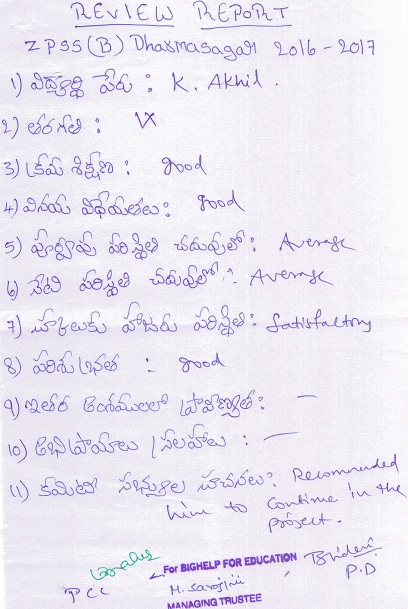 REVIEW REPORT
ZPSS(B) Dharmasagar 2016-2017
1) విద్యార్థి పేరు : K. Akhil.
2) తరగతి :
3) క్రమ శిక్షణ : good
4) వినయ విధేయతలు : good
5) పూర్వపు పరిస్థితి చదువులో : Average
6) నేటి పరిస్థితి చదువులో : Average
7) హాజరు పరిస్థితి : Satisfactory
8) పరిశుభ్రత : good
9) ఇతర అంశములలో ప్రావీణ్యత : —
10) అభిప్రాయాలు / సలహాలు : —
11) కమిటీ సభ్యుల సూచనలు : Recommended
him to continue in the
project.
For BIGHELP FOR EDUCATION
M. Sarojini P.D
MANAGING TRUSTEE